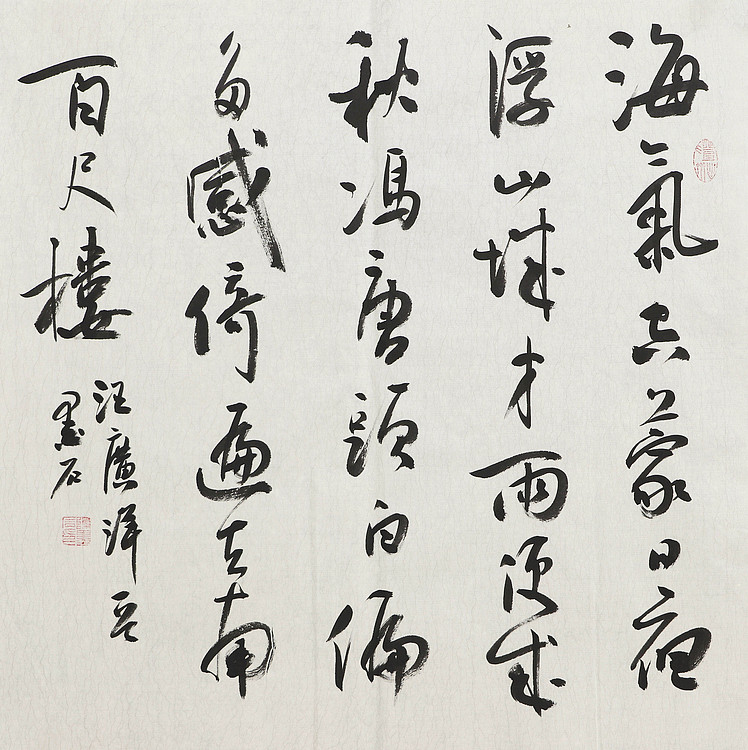 海氣空蒙日夜
浮山城才雨便成
秋馮唐頭白偏
多感倚遍天南
百尺樓
汪廣洋
墨石